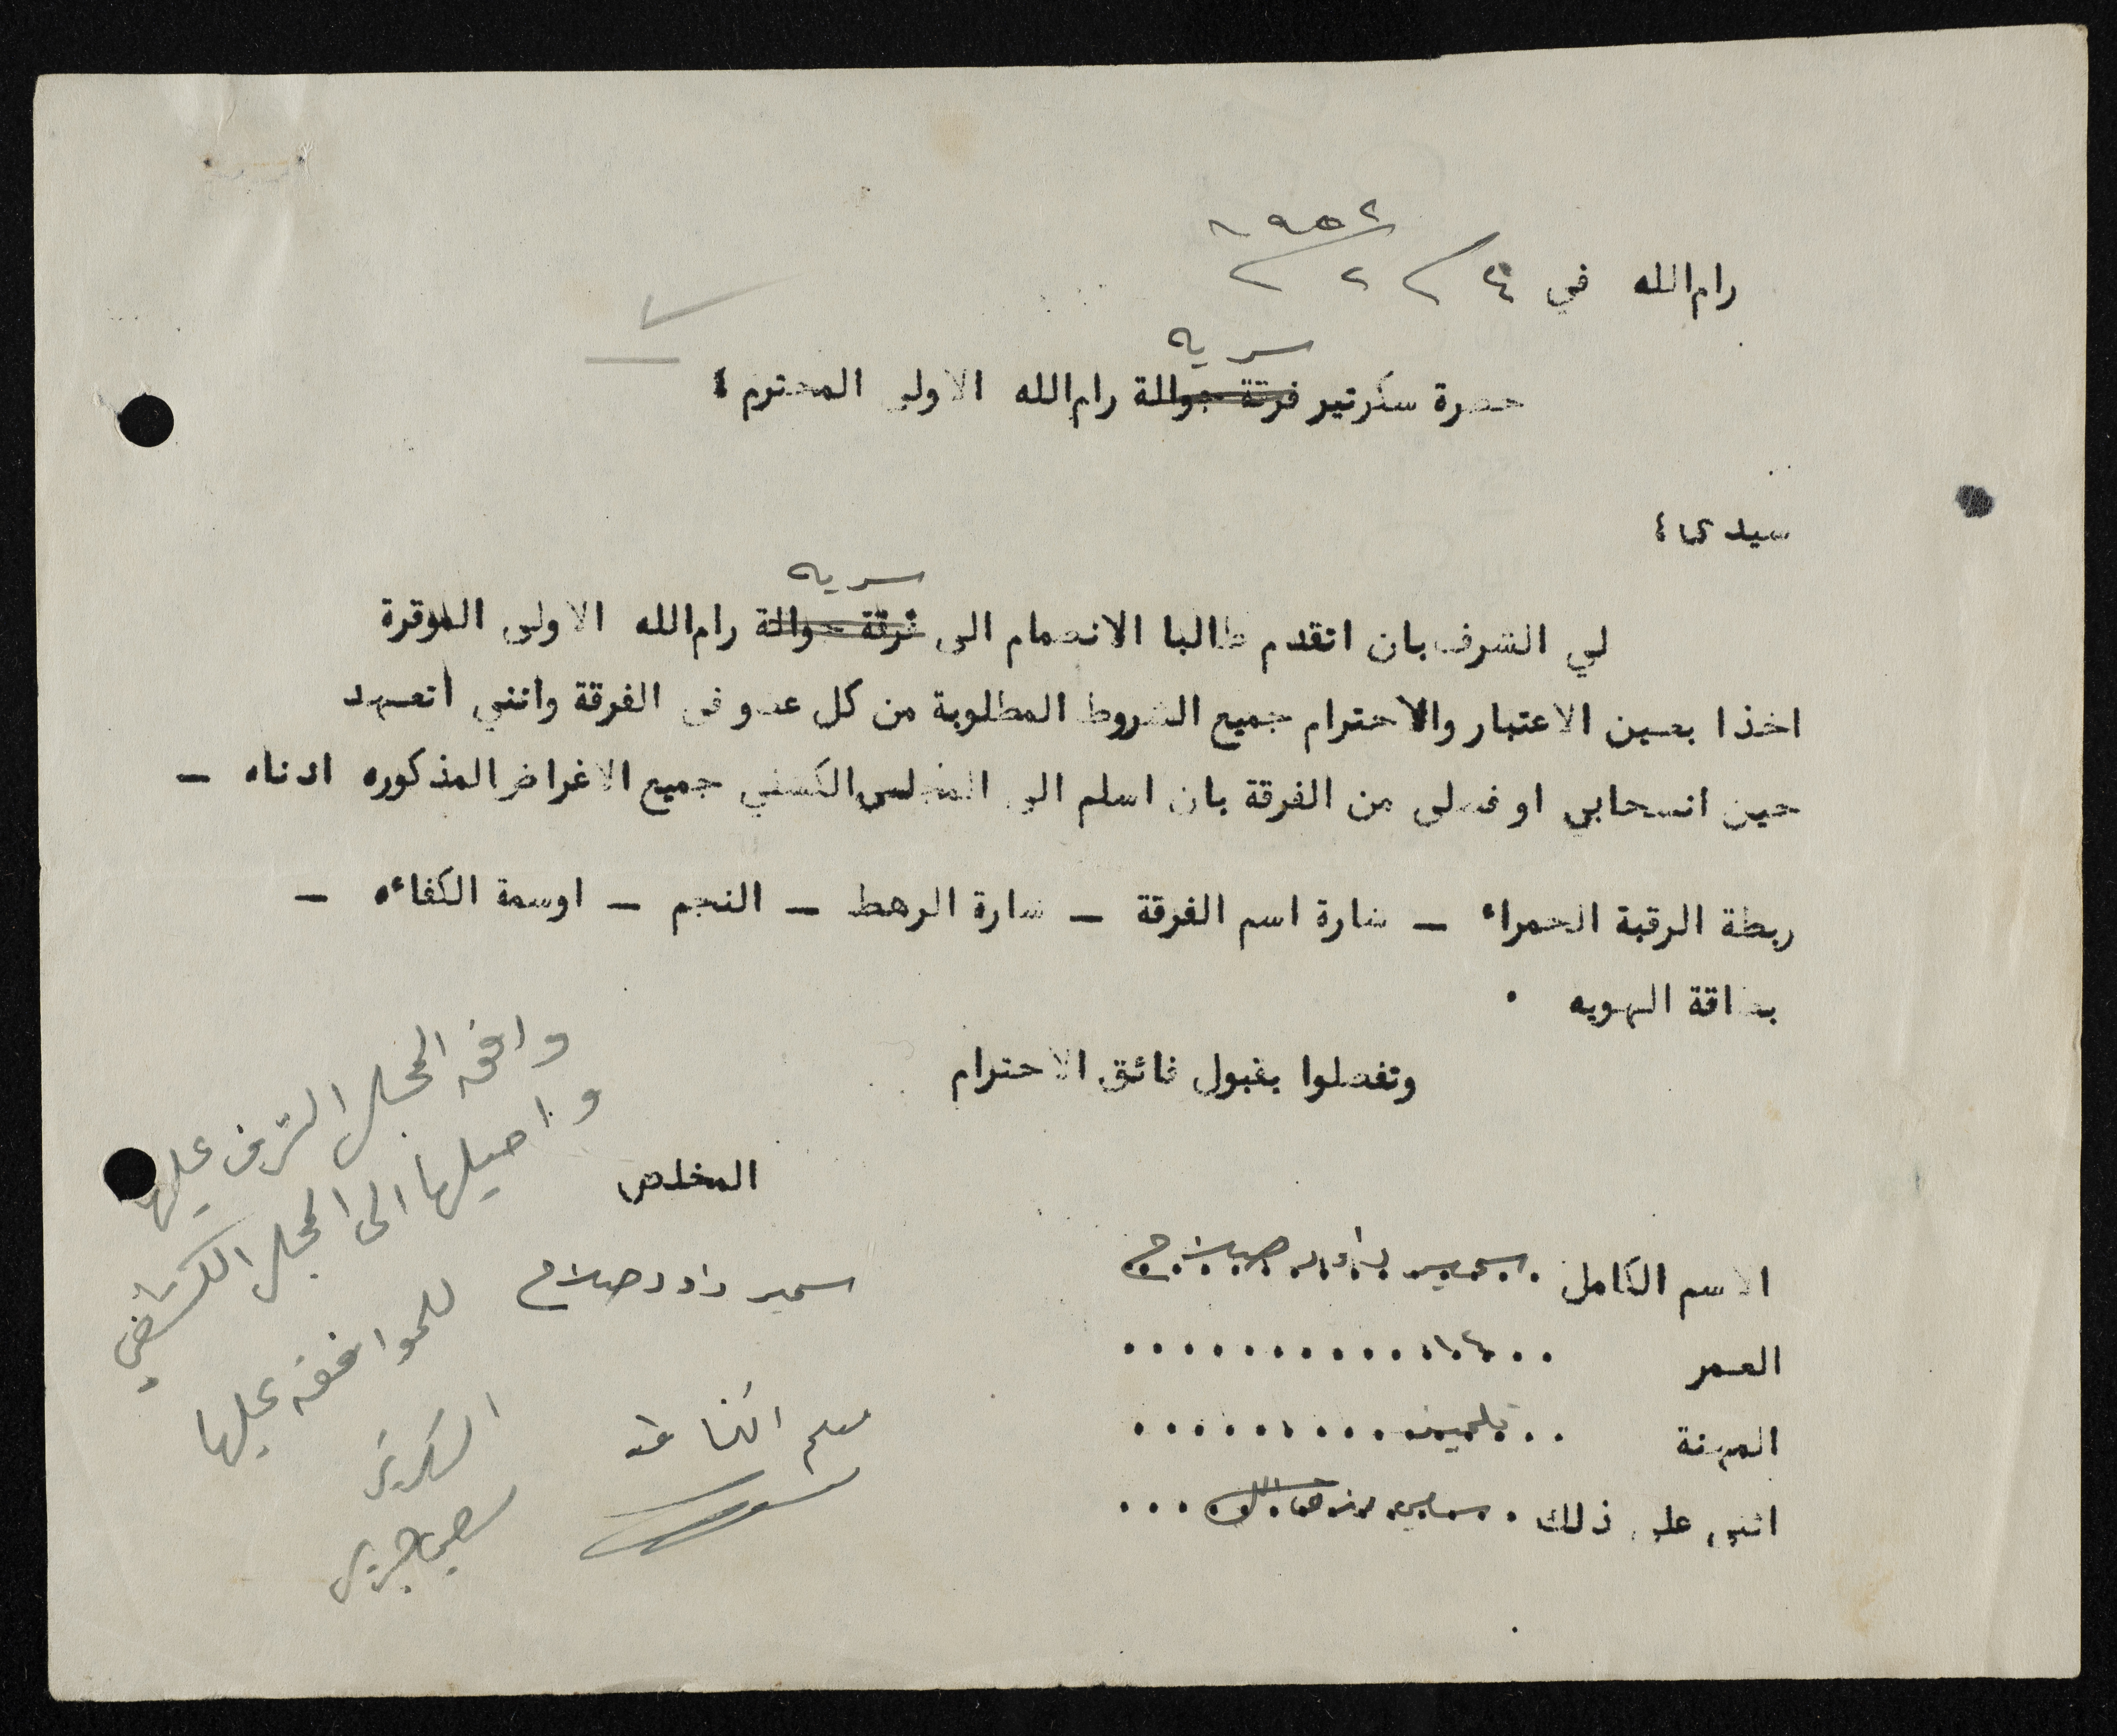 رام الله في ٤ / ٢ / ١٩٥٢
سريه
حضرة سكرتير فرقة جوالة رام الله الاولى المحترم ؛
سيدى ؛
سريه
لي الشرف بان اتقدم طالبا الانضمام الى فرقة جوالة رام الله الاولى الموقرة
اخذا بعين الاعتبار والاحترام جميع الشروط المطلوبة من كل عضو في الفرقة وانني أتعهد
حين انسحابي او فصلي من الفرقة بان اسلم الى المجلس الكشفي جميع الاغراض المذكوره ادناه —
ربطة الرقبة الحمراء — شارة اسم الفرقة — شارة الرهط — النجم — اوسمة الكفاءه —
بطاقة الهويه .
وتفضلوا بقبول فائق الاحترام
المخلص
الاسم الكامل سمير داود صلاح
سمير داود صلاح
العمر ١٤
المهنة تلميذ
اثنى على ذلك
وافق المجلس الشرف عليها
واحيلها الى المجلس الكشفي
للموافقه عليها
السكرتير